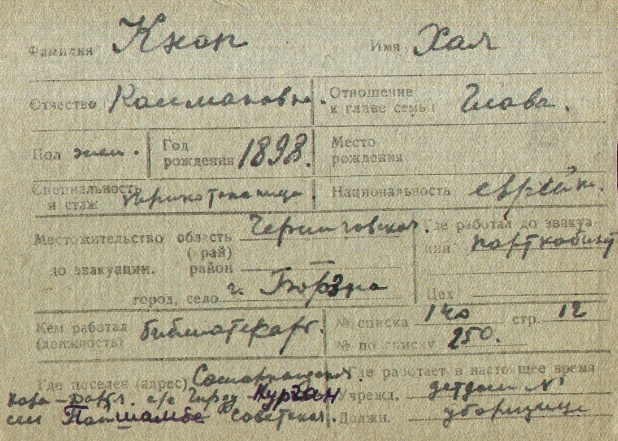 Фамилия Кноп Имя Хая
Отчество Калмановна. Отношение к главе семьи Глава.
Пол жен. Год рождения 1898. Место рождения
Специальность и стаж трикотажница Национальность еврейк.
Местожительство область (край) Черниговская. Где работал до эвакуации парткабинет
до эвакуации. район —
город, село г. Борзна Цех
Кем работал (должность) библиотекарь. № списка 140 стр. 12
№ по списку 250.
Где поселен (адрес) Где работает в настоящее время
с/с Курган Учрежд. детдом №1
Пайшамбе Советская. Должн. уборщица